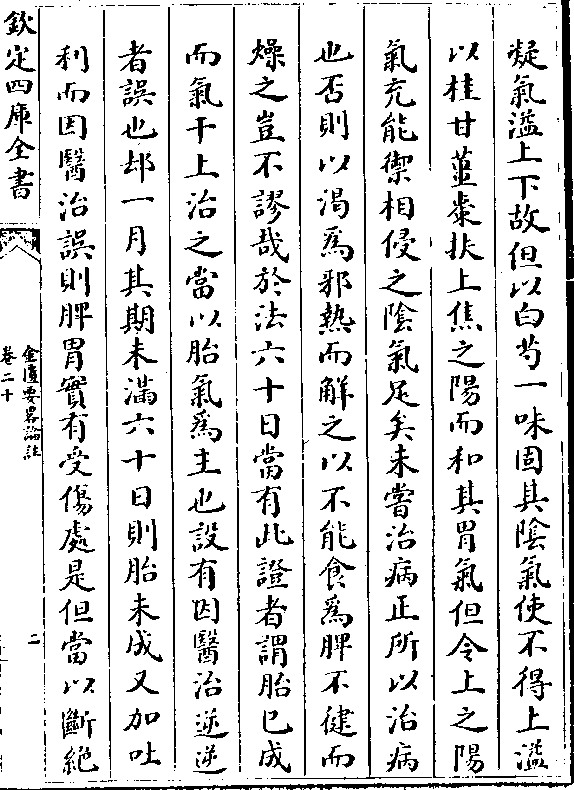 凝氣溢上下故但以白芍一味固其陰氣使不得上溢
以桂甘薑棗扶上焦之陽而和其胃氣但令上之陽
氣充能禦相侵之陰氣足矣未嘗治病正所以治病
也否則以渴爲邪熱而解之以不能食爲脾不健而
燥之豈不謬哉於法六十日當有此證者謂胎已成
而氣干上治之當以胎氣爲主也設有因醫治逆逆
者誤也却一月其期未滿六十日則胎未成又加吐
利而因醫治誤則脾胃實有受傷處是但當以斷絶
欽定四庫全書
金匱要畧論註
卷二十
二